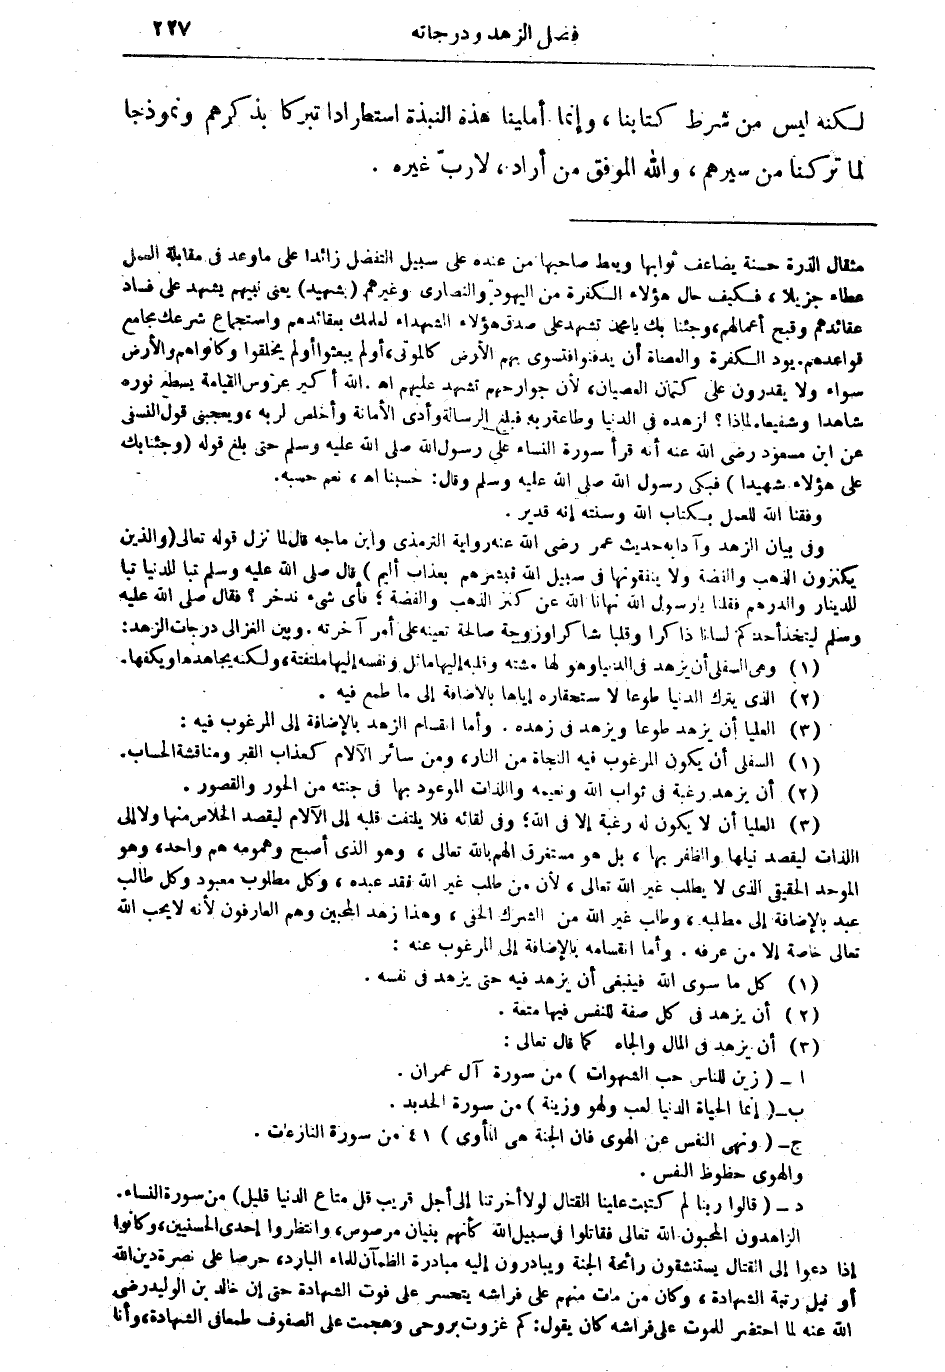 فضل الزهد ودرجاته ٢٢٧
لكنه ليس من شرط كتابنا، وإنما أملينا هذه النبذة استطرادا تبركا بذكرهم ونموذجا
لما تركنا من سيرهم، والله الموفق من أراد، لارب غيره .
مثقال الذرة حسنة يضاعف ثوابها ويعط صاحبها من عنده على سبيل التفضل زائدا على ماوعد فى مقابلة العمل
عطاء جزيلا، فكيف حال هؤلاء الكفرة من اليهود والنصارى وغيرهم (بشهيد) يعنى نبيهم يشهد على فساد
عقائدهم وقبح أعمالهم، وجئنا بك يامحمد تشهد على صدق هؤلاء الشهداء لعلمك بعقائدهم واستجماع شرعك مجامع
قواعدهم. يود الكفرة والعصاة أن يدفنوا فتسوى بهم الأرض كالموتى، أو لم يبعثوا أو لم يخلقوا وكانوا هم والأرض
سواء ولا يقدرون على كتمان العصيان، لأن جوارحهم تشهد عليهم اهـ. الله أكبر عروس القيامة يسطع نوره
شاهدا وشفيعا. لماذا؟ لزهده فى الدنيا وطاعة ربه فبلغ الرسالة وأدى الأمانة وأخلص لربه، ويعجبنى قول النسفى
عن ابن مسعود رضى الله عنه أنه قرأ سورة النساء على رسول الله صلى الله عليه وسلم حتى بلغ قوله (وجئنا بك
على هؤلاء شهيدا) فبكى رسول الله صلى الله عليه وسلم وقال: حسبنا اهـ، نعم حسبه.
وفقنا الله للعمل بكتاب الله وسنته إنه قدير .
وفى بيان الزهد وآدابه حديث عمر رضى الله عنه رواية الترمذى وابن ماجه قال لما نزل قوله تعالى (والذين
يكنزون الذهب والفضة ولا ينفقونها فى سبيل الله فبشرهم بعذاب أليم) قال صلى الله عليه وسلم تبا للدنيا تبا
للدينار والدرهم فقلنا يارسول الله نهانا الله عن كنز الذهب والفضة؛ فأى شىء ندخر؟ فقال صلى الله عليه
وسلم ليتخذ أحدكم لسانا ذاكرا وقلبا شاكرا وزوجة صالحة تعينه على أمر آخرته. وبين الغزالى درجات الزهد:
(١) وهى السفلى أن يزهد فى الدنيا وهو لها مشته وقلبه إليها مائل ونفسه إليها ملتفتة، ولكنه يجاهدها ويكفها.
(٢) الذى يترك الدنيا طوعا لاستحقاره إياها بالاضافة إلى ما طمع فيه .
(٣) العليا أن يزهد طوعا ويزهد فى زهده . وأما انقسام الزهد بالإضافة إلى المرغوب فيه :
(١) السفلى أن يكون المرغوب فيه النجاة من النار، ومن سائر الآلام كعذاب القبر ومناقشة الحساب.
(٢) أن يزهد رغبة فى ثواب الله ونعيمه واللذات الموعود بها فى جنته من الحور والقصور .
(٣) العليا أن لا يكون له رغبة إلا فى الله؛ وفى لقائه فلا يلتفت قلبه إلى الآلام ليقصد الخلاص منها ولا إلى
اللذات ليقصد نيلها والظفر بها، بل هو مستغرق الهم بالله تعالى، وهو الذى أصبح وهمومه هم واحد، وهو
الموحد الحقيقى الذى لا يطلب غير الله تعالى، لأن من طلب غير الله فقد عبده، وكل مطلوب معبود وكل طالب
عبد بالإضافة إلى مطلبه، وطلب غير الله من الشرك الخفى، وهذا زهد المحبين وهم العارفون لأنه لا يحب الله
تعالى خاصة إلا من عرفه . وأما انقسامه بالإضافة إلى المرغوب عنه :
(١) كل ما سوى الله فينبغى أن يزهد فيه حتى يزهد فى نفسه .
(٢) أن يزهد فى كل صفة للنفس فيها متعة .
(٣) أن يزهد فى المال والجاه كما قال تعالى :
ا ـ (زين للناس حب الشهوات) من سورة آل عمران .
ب ـ (إنما الحياة الدنيا لعب ولهو وزينة) من سورة الحديد .
ج ـ (ونهى النفس عن الهوى فان الجنة هى المأوى) ٤١ من سورة النازعات .
والهوى حظوظ النفس .
د ـ (قالوا ربنا لم كتبت علينا القتال لولا أخرتنا إلى أجل قريب قل متاع الدنيا قليل) من سورة النساء.
الزاهدون المحبون الله تعالى فقاتلوا فى سبيل الله كأنهم بنيان مرصوص، وانتظروا إحدى الحسنيين، وكانوا
إذا دعوا إلى القتال يستنشقون رائحة الجنة ويبادرون إليه مبادرة الظمآن للماء البارد، حرصا على نصرة دين الله
أو نيل رتبة الشهادة، وكان من مات منهم على فراشه يتحسر على فوت الشهادة حتى إن خالد بن الوليد رضى
الله عنه لما احتضر للموت على فراشه كان يقول: كم غزوت بروحى وهجمت على الصفوف طمعا فى الشهادة، وأنا